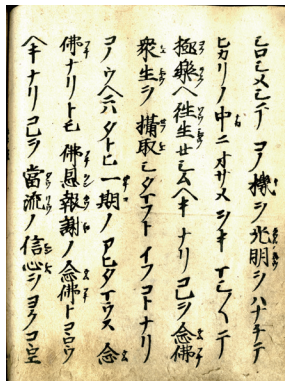 シロシメシテコノ機ヲ光明ヲハナチテ
ヒカリノ中ニオサメヲキマシ〱テ
極樂ヘ往生セシムヘキナリコレヲ念佛
衆生ヲ攝取シタマフトイフコトナリ
コノウヘニハタトヒ一期ノアヒタマウス念
佛ナリトモ佛恩報謝ノ念佛トコヽロウ
ヘキナリコレヲ當流ノ信心ヲヨクコヽロ